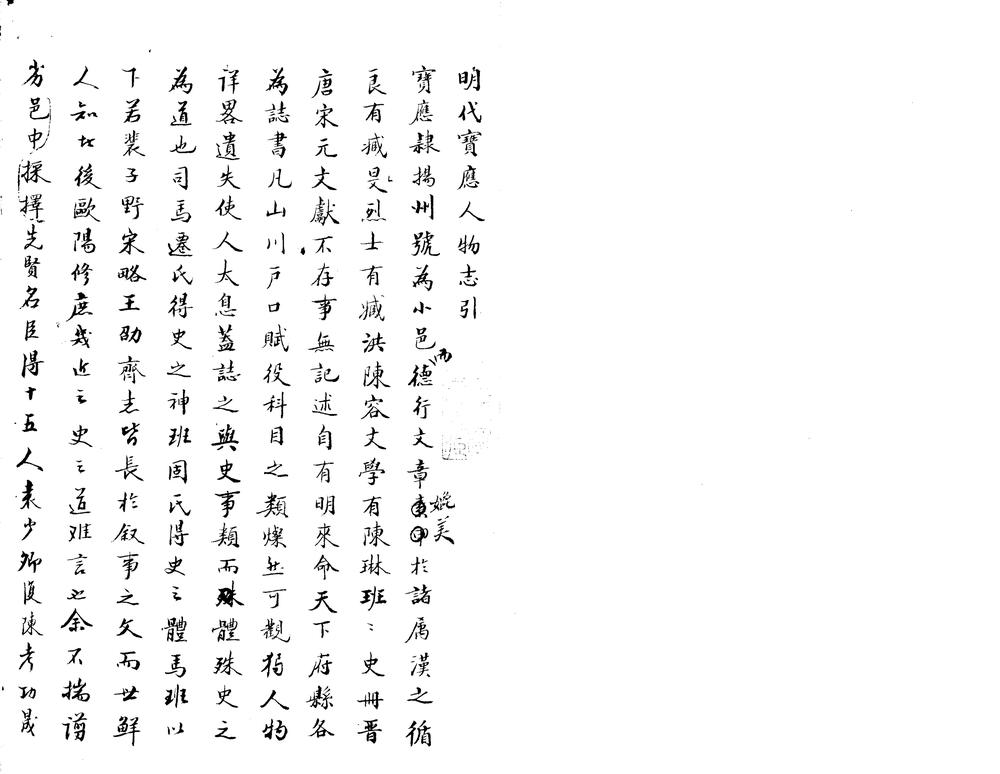 明代寶應人物志引
寶應隸揚州號為小邑而德行文章媲美於諸屬漢之循
良有臧旻烈士有臧洪陳容文學有陳琳班〻史冊晋
唐宋元文獻不存事無記述自有明來命天下府縣各
為誌書凡山川戶口賦役科目之類燦然可觀獨人物
详畧遺失使人太息蓋誌之與史事類而殊體殊史之
為道也司馬遷氏得史之神班固氏得史之體馬班以
下若裴子野宋略王劭齊志皆長於叙事之文而世鮮
人知此後歐陽修庶幾近之史之道难言也余不揣谫
劣邑中採擇先賢名臣得十五人袁少卿復陳考功晟